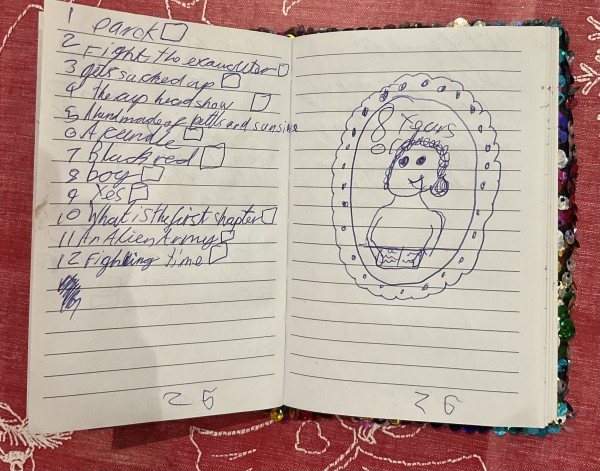 1 parck
2 Fight the exauchter
3 gets sucked up
4 the cup head show
5 A land made of petls and sunsine
6 A candle
7 Black red
8 boy
9 Yes
10 What is the first shapter
11 An Alien Army
12 Fighting time
8 Years